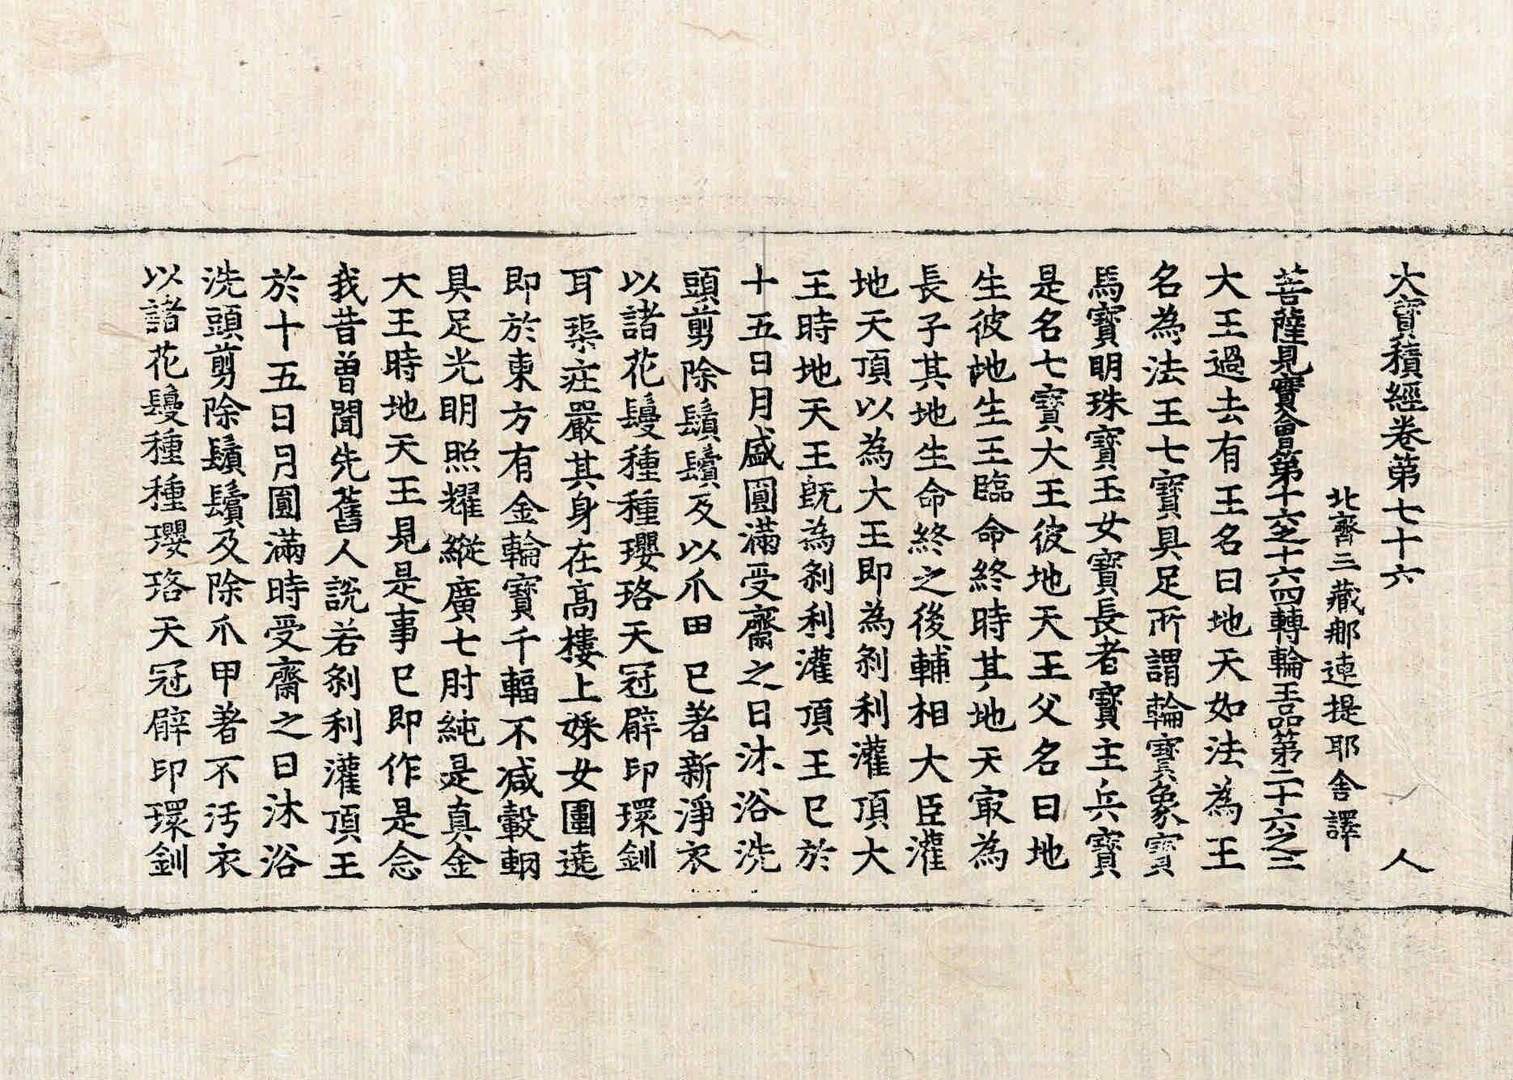 大寶積經卷第七十六 人
北齊三藏郍連提耶舍譯
菩薩見實會第十六之十六四轉輪王品第二十六之三
大王過去有王名曰地天如法為王
名為法王七寶具足所謂輪寶象寶
馬寶明珠寶玉女寶長者寶主兵寶
是名七寶大王彼地天王父名曰地
生彼地生王臨命終時其地天冣為
長子其地生命終之後輔相大臣灌
地天頂以為大王即為剎利灌頂大
王時地天王旣為剎利灌頂王已於
十五日月盛圓滿受齋之日沐浴洗
頭剪除鬚鬢及以爪田已著新淨衣
以諸花鬘種種瓔珞天冠臂印環釧
耳渠莊嚴其身在高樓上婇女圍遶
即於東方有金輪寶千輻不減轂輞
具足光明照耀縱廣七肘純是真金
大王時地天王見是事已即作是念
我昔曾聞先舊人說若剎利灌頂王
於十五日月圓滿時受齋之日沐浴
洗頭剪除鬚鬢及除爪甲著不汚衣
以諸花鬘種種瓔珞天冠臂印環釧